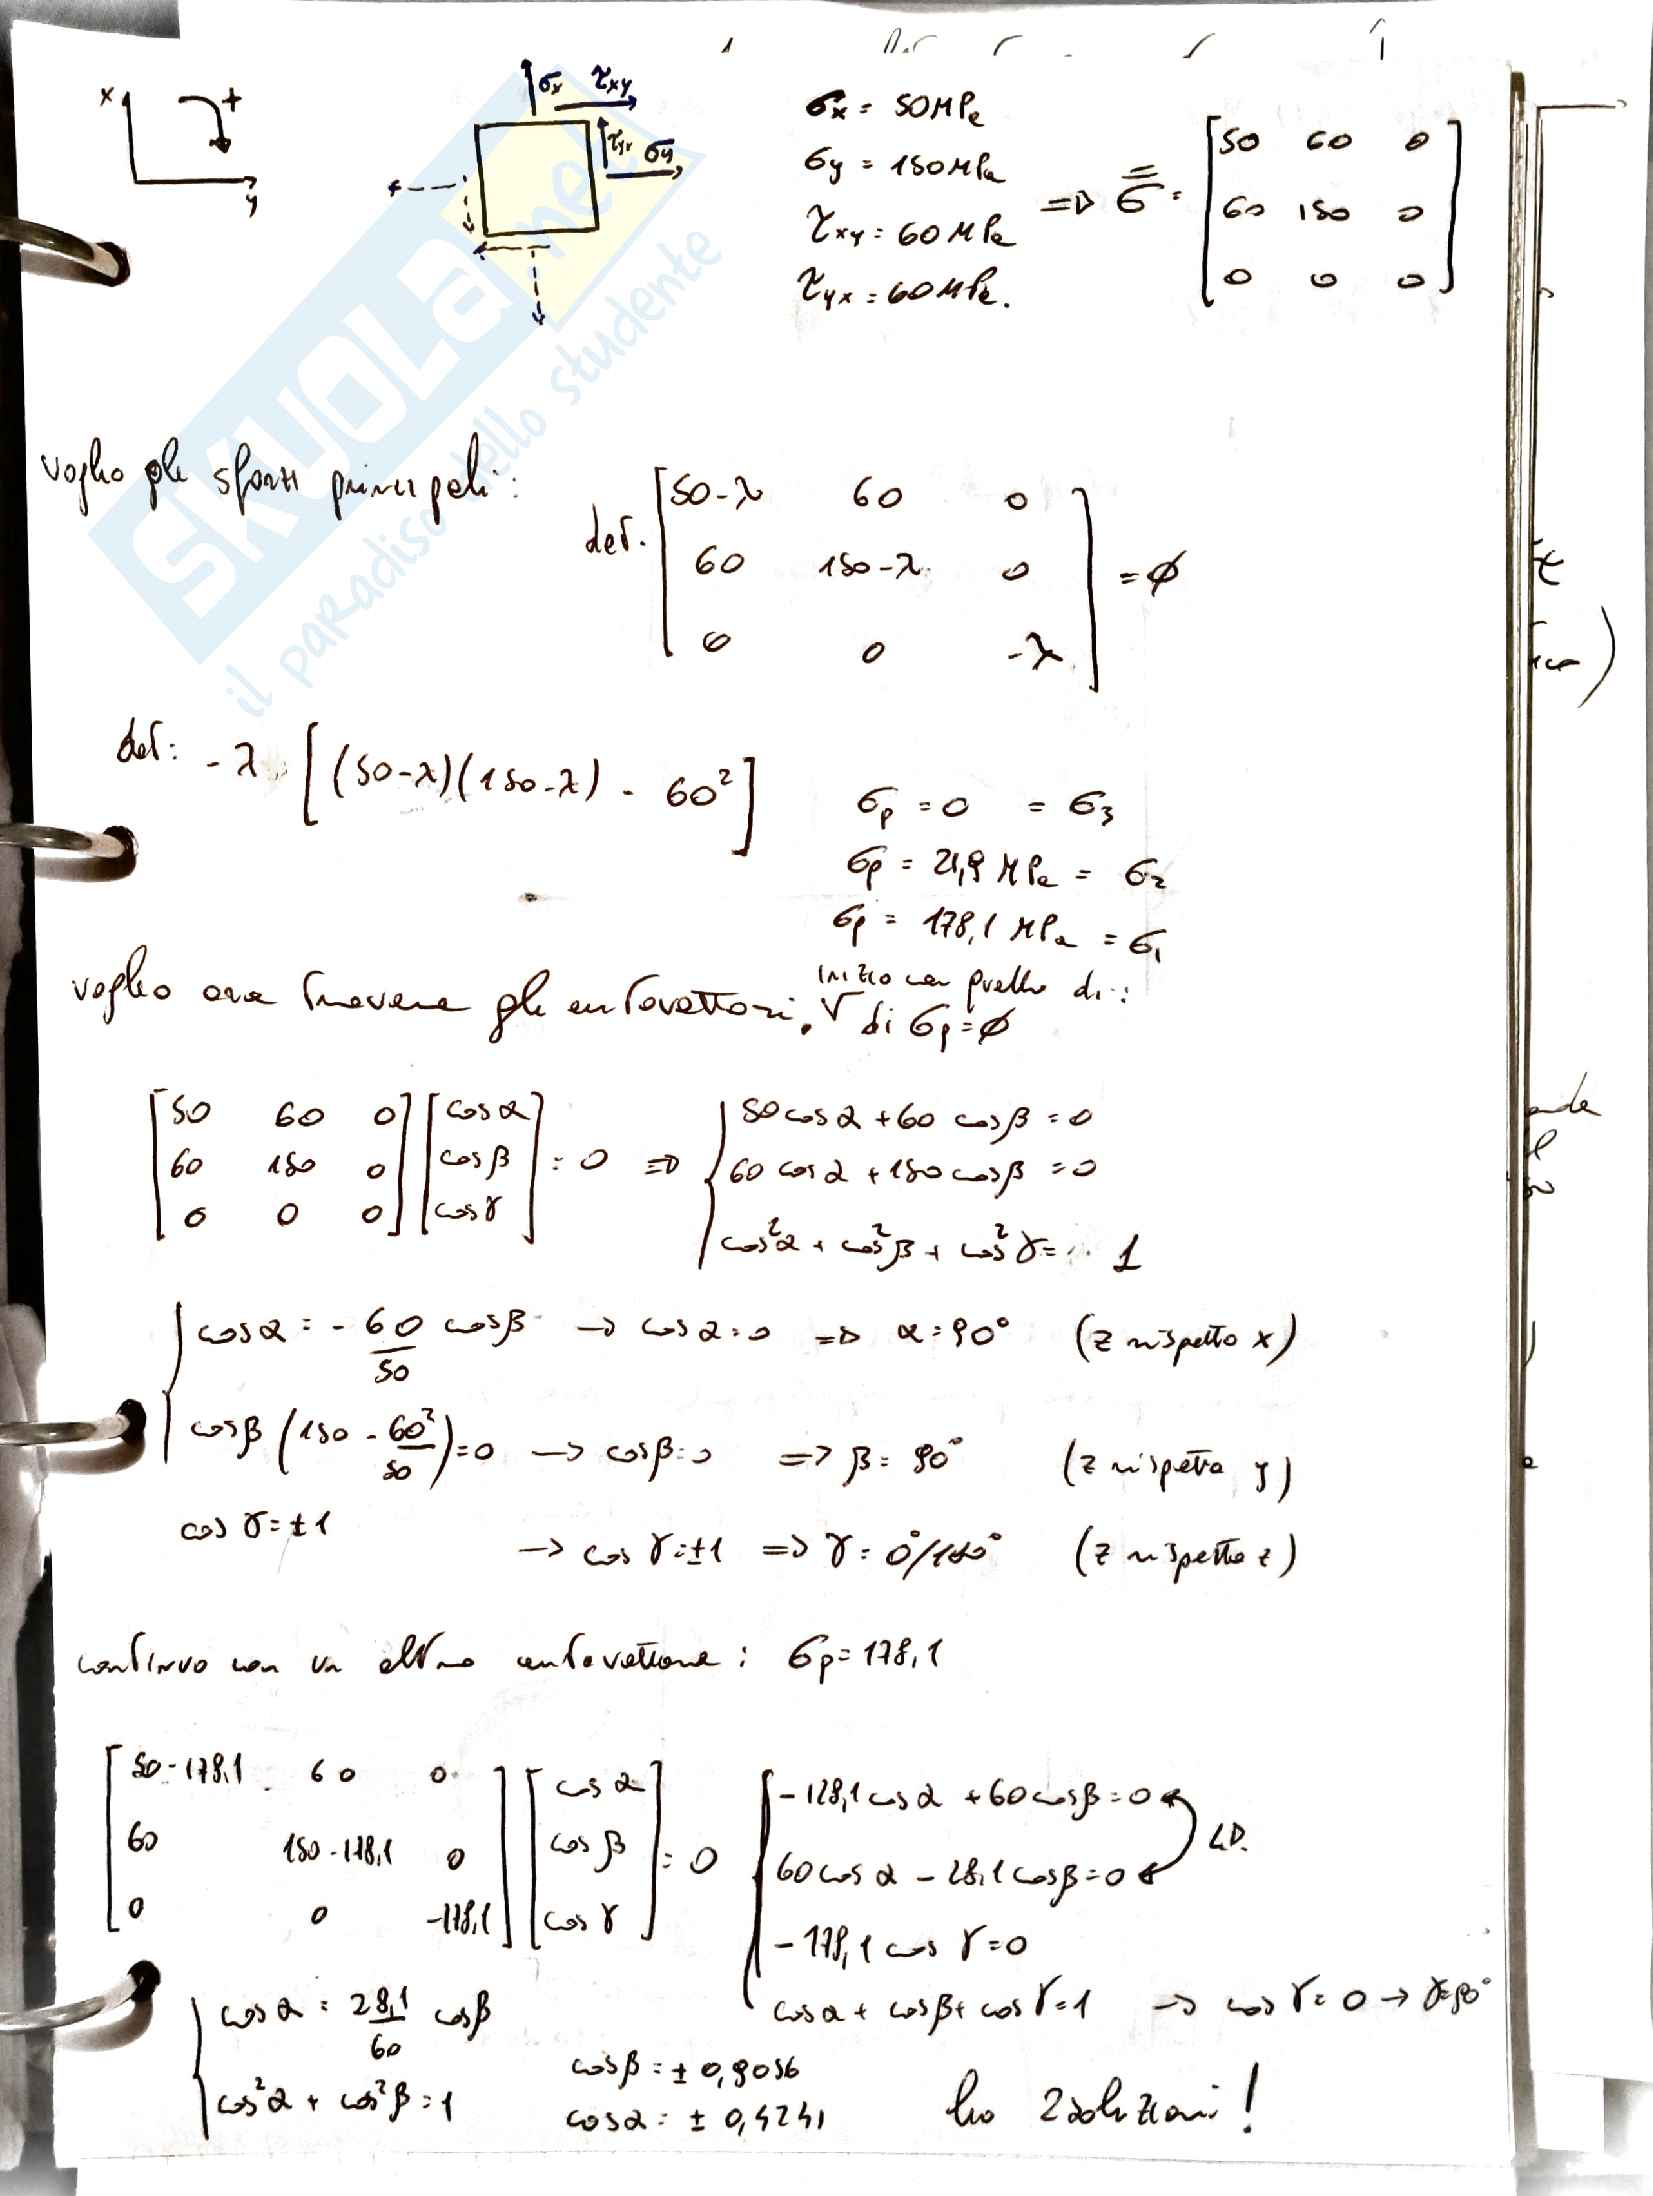 x
+
y
σx τxy
τyx σy
σx = 50 MPa
σy = 150 MPa
τxy = 60 MPa
τyx = 60 MPa.
=> σ = [50 60 0
60 150 0
0 0 0]
SKUOLA.net
il paradiso dello studente
voglio gli sforzi principali:
det. [50-λ 60 0
60 150-λ 0
0 0 -λ] = ø
det: -λ [(50-λ)(150-λ) - 60²]
σp = 0 = σ3
σp = 21,9 MPa = σ2
σp = 178,1 MPa = σ1
voglio ora trovare gli autovettori. inizio con quello di:
di σp = ø
[50 60 0] [cos α]
[60 150 0] [cos β] = 0 =>
[0 0 0] [cos γ]
50 cos α + 60 cos β = 0
60 cos α + 150 cos β = 0
cos²α + cos²β + cos²γ = 1
cos α = - 60/50 cos β -> cos α = 0 => α = 90° (z rispetto x)
cos β (150 - 60²/50) = 0 -> cos β = 0 => β = 90° (z rispetto y)
cos γ = ±1
-> cos γ = ±1 => γ = 0°/180° (z rispetto z)
continuo con un altro autovettore: σp = 178,1
[50-178,1 60 0] [cos α]
[60 150-178,1 0] [cos β] = 0
[0 0 -178,1] [cos γ]
-128,1 cos α + 60 cos β = 0
60 cos α - 28,1 cos β = 0
L.D.
-178,1 cos γ = 0
cos α + cos β + cos γ = 1 -> cos γ = 0 -> γ = 90°
cos α = 28,1/60 cos β
cos²α + cos²β = 1
cos β = ± 0,9056
cos α = ± 0,4241
ho 2 soluzioni!